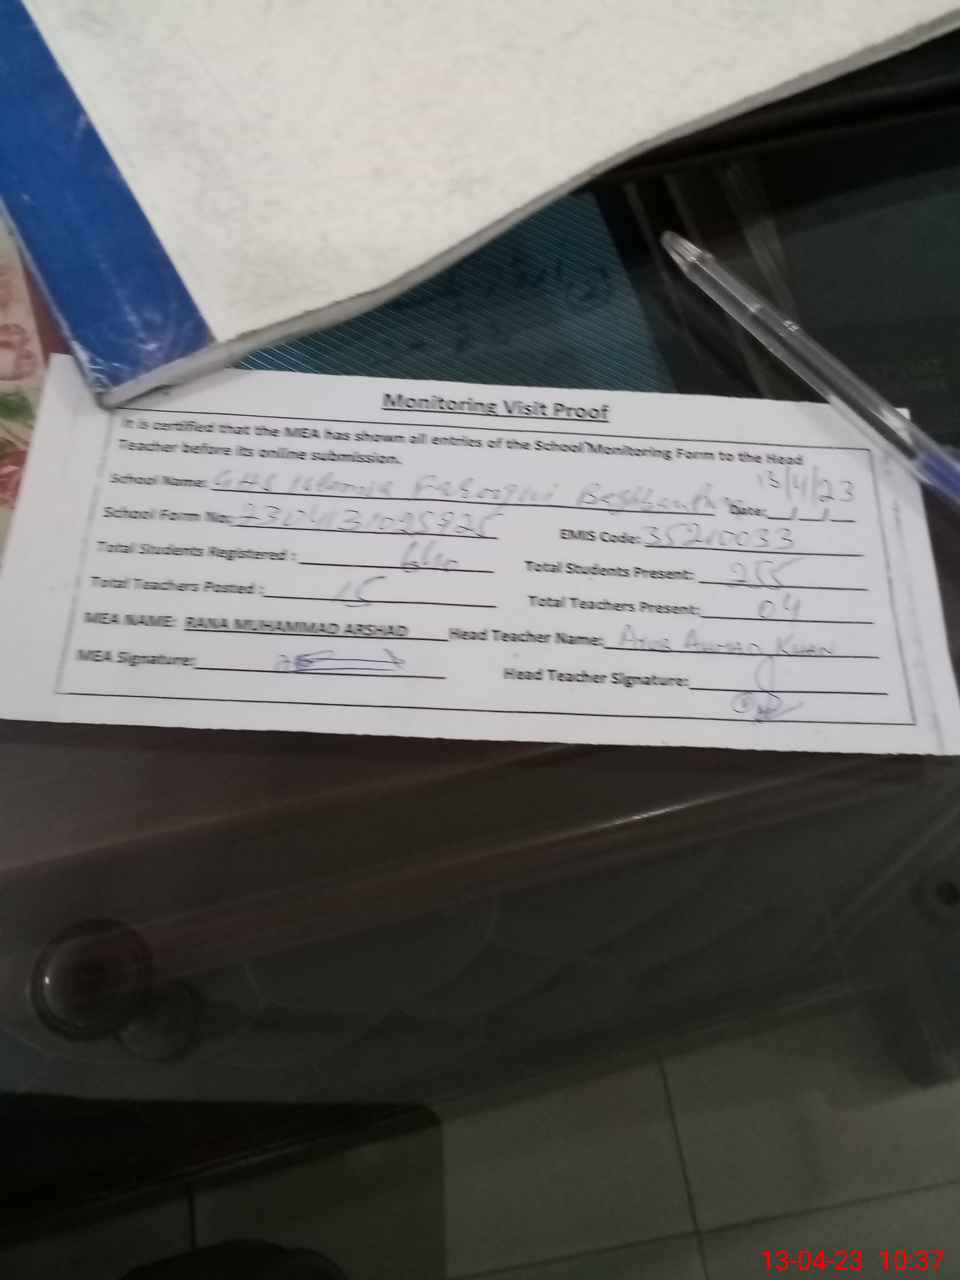 Monitoring Visit Proof
It is certified that the MEA has shown all entries of the School Monitoring Form to the Head
Teacher before its online submission.
School Name: GHS Islamia Date: 13/4/23
School Form No: EMIS Code: 35210033
Total Students Registered : Total Students Present: 255
Total Teachers Posted : 15 Total Teachers Present: 04
MEA NAME: RANA MUHAMMAD ARSHAD Head Teacher Name: AHMAD KHAN
MEA Signature: Head Teacher Signature:
13-04-23 10:37